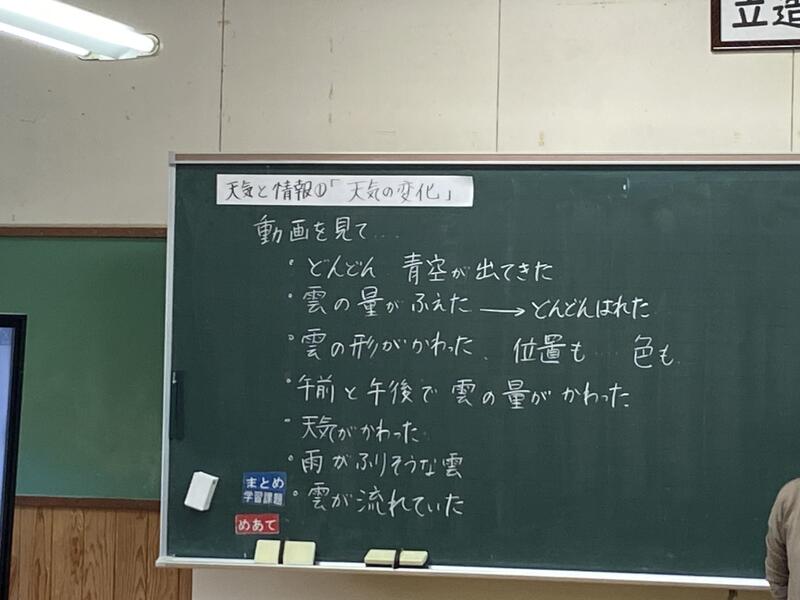 立造
天気と情報①「天気の変化」
動画を見て……
・どんどん 青空が出てきた
・雲の量がふえた → どんどんはれた
・雲の形がかわった、位置も…色も
・午前と午後で雲の量がかわった
・天気がかわった
・雨がふりそうな雲
・雲が流れていた
まとめ
学習課題
めあて